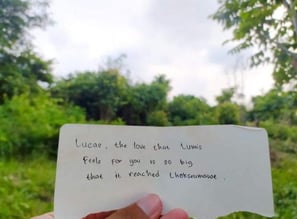 Lucas, the love that Lumis
feels for you is so big
that it reached Lhokseumawe.